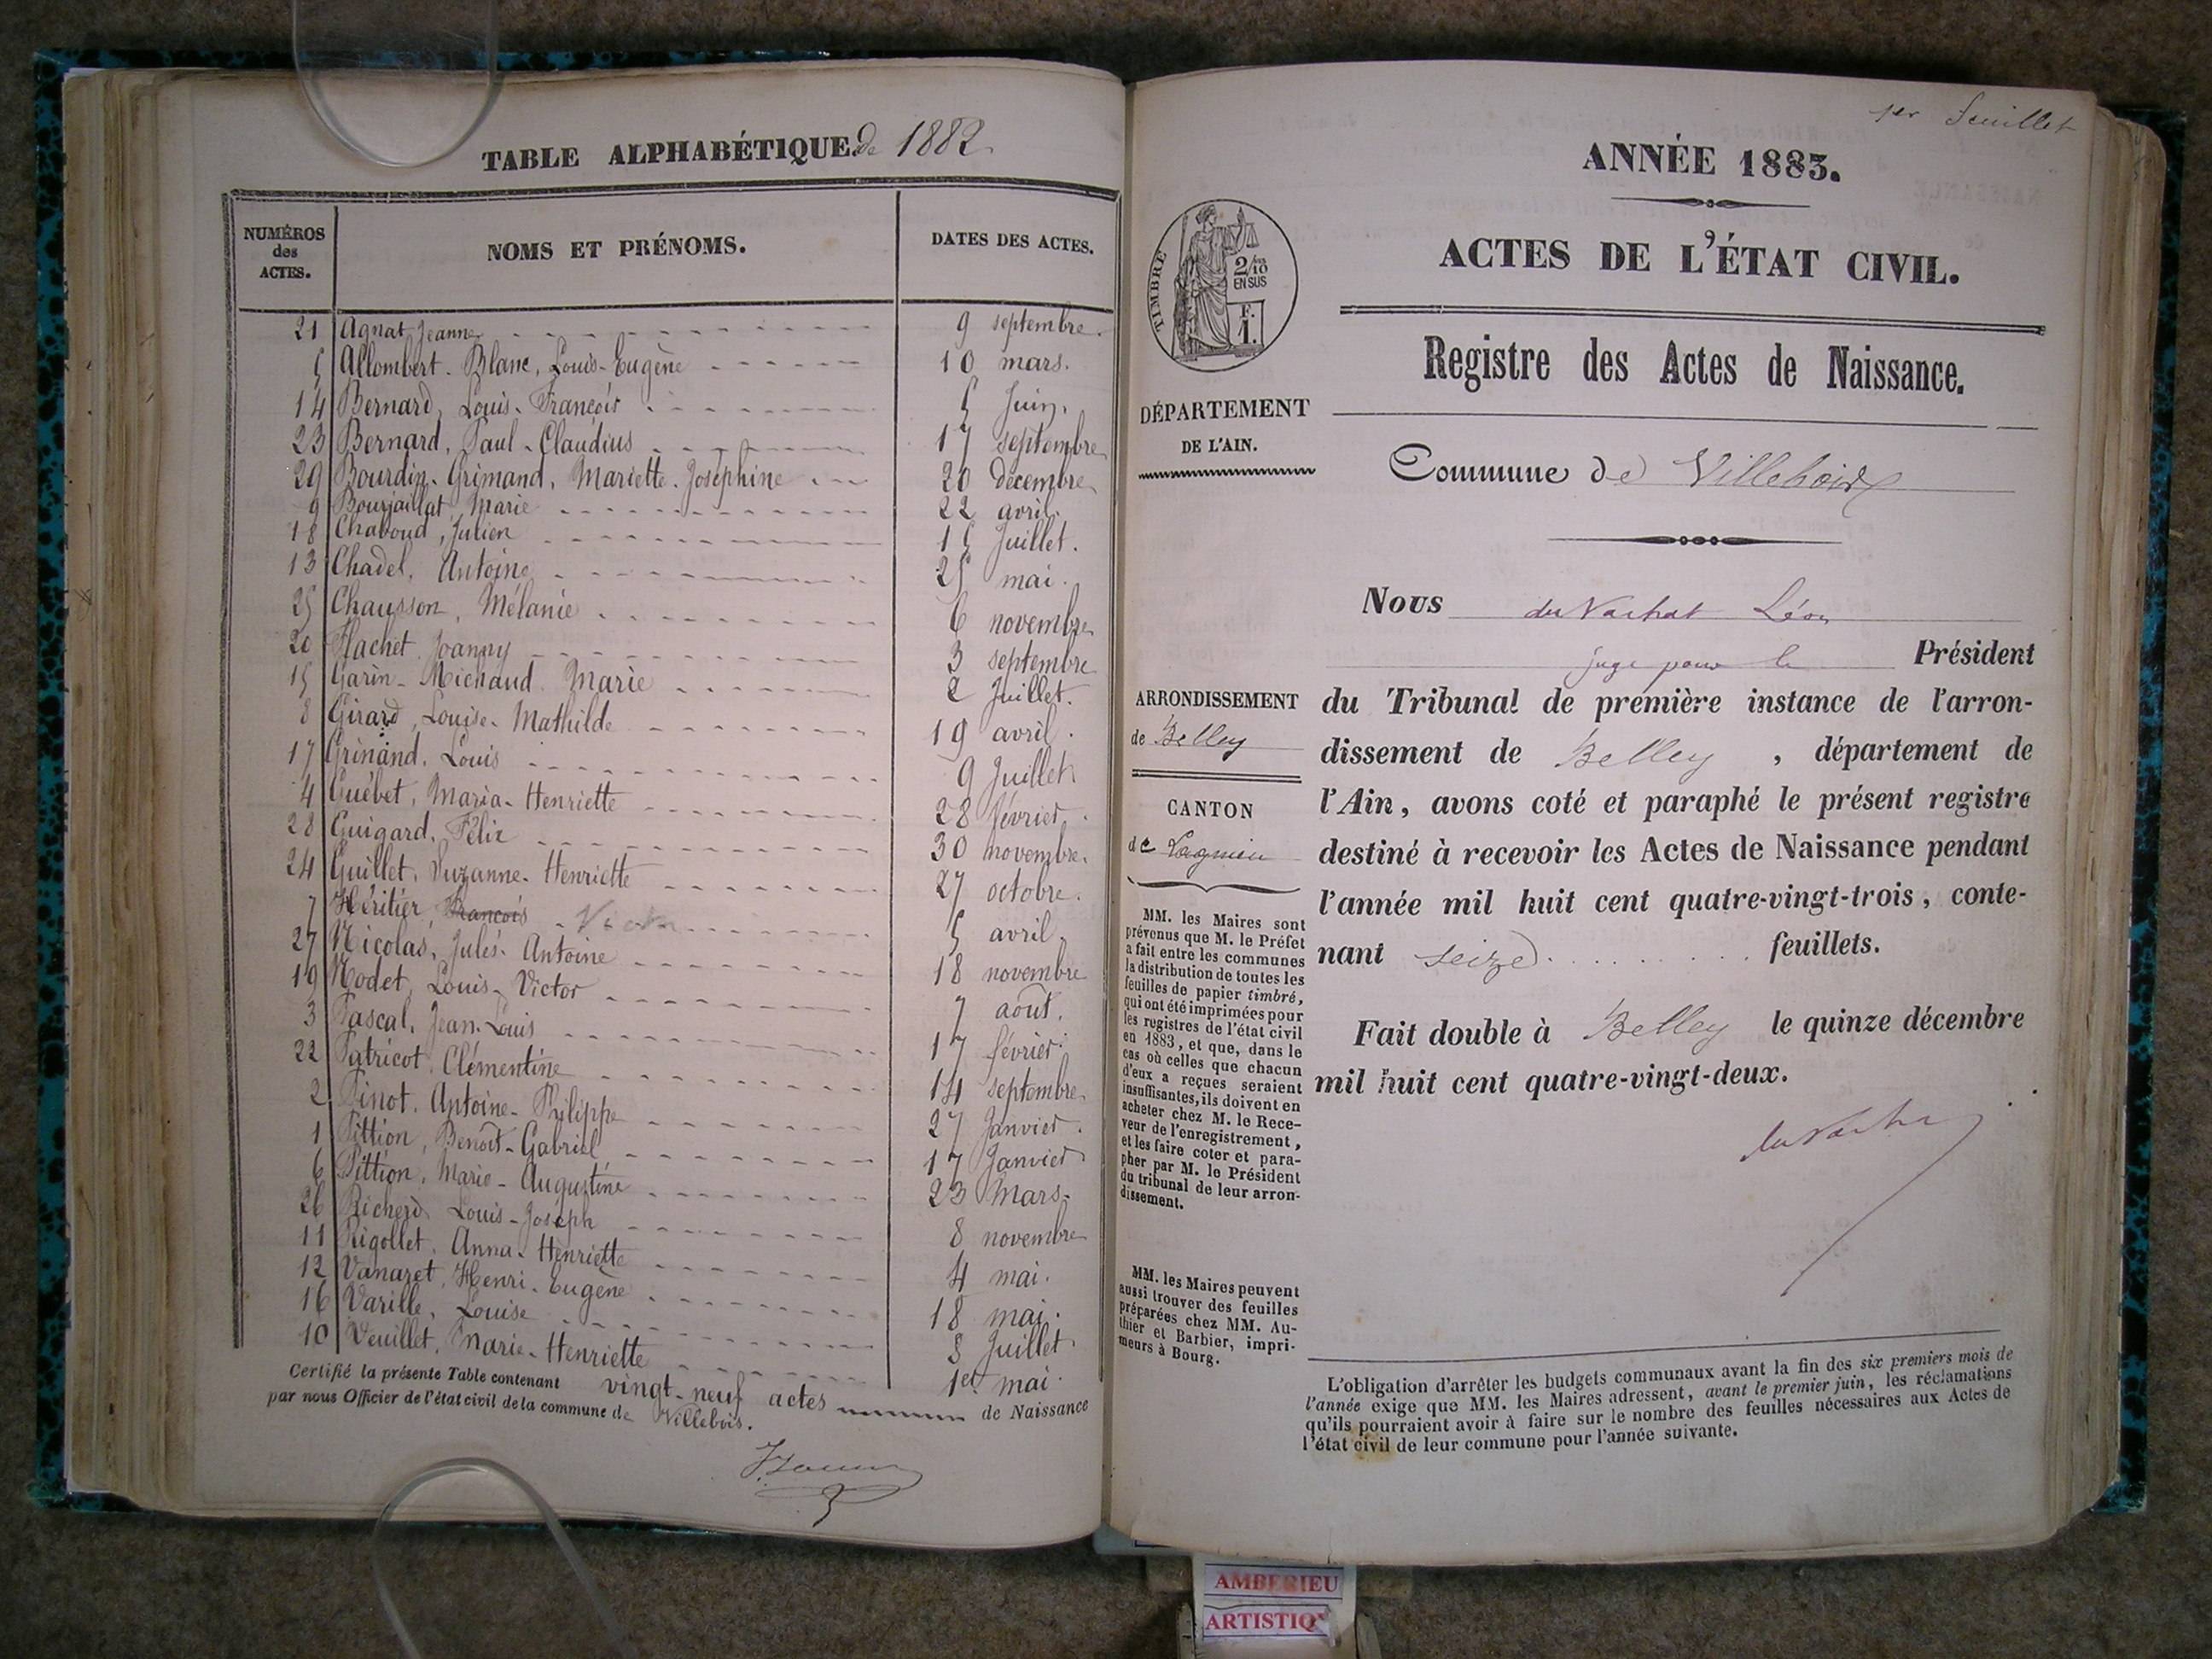 TABLE ALPHABÉTIQUE de 1882.
NUMÉROS des ACTES.
NOMS ET PRÉNOMS.
DATES DES ACTES.
21 Agnat Jeanne 9 septembre.
5 Allombert-Blanc, Louis-Eugène 10 mars.
14 Bernard, Louis-François 5 Juin.
23 Bernard, Paul-Claudius 17 septembre
29 Bourdin-Grimand, Mariette-Joséphine 20 décembre
9 Bourjaillat, Marie 22 avril.
18 Chaboud, Julien 15 Juillet.
13 Chadel, Antoine 25 mai.
25 Chausson, Mélanie 6 novembre
20 Flachet Joanny 3 septembre
15 Garin-Michaud Marie 2 Juillet.
8 Girard, Louise-Mathilde 19 avril.
17 Grinand, Louis 9 Juillet
4 Guébet, Maria-Henriette 28 février.
28 Guigard, Félix 30 novembre.
24 Guillet, Suzanne-Henriette 27 octobre.
7 Héritier, François Victor 5 avril.
27 Nicolas, Jules-Antoine 18 novembre
19 Nodet, Louis-Victor 7 août.
3 Pascal, Jean-Louis 17 février.
22 Patricot, Clémentine 14 septembre
2 Pinot, Antoine-Philippe 27 Janvier.
1 Pittion, Benoît-Gabriel 17 Janvier
6 Pittion, Marie-Augustine 23 Mars.
26 Richerd Louis-Joseph 8 novembre
11 Rigollet, Anna-Henriette 4 mai.
12 Vanaret, Henri-Eugène 18 mai.
16 Varille, Louise 8 Juillet
10 Veuillet, Marie-Henriette 1er mai.
Certifié la présente Table contenant vingt-neuf actes de Naissance
par nous Officier de l'état civil de la commune de Villebois.
1er Feuillet
ANNÉE 1883.
ACTES DE L'ÉTAT CIVIL.
TIMBRE
2/10
EN SUS
F.
1.
Registre des Actes de Naissance.
DÉPARTEMENT
DE L'AIN.
Commune de Villebois
Nous du Vachat Léon
juge pour le Président
ARRONDISSEMENT
de Belley
CANTON
de Lagnieu
du Tribunal de première instance de l'arron-
dissement de Belley, département de
l'Ain, avons coté et paraphé le présent registre
destiné à recevoir les Actes de Naissance pendant
l'année mil huit cent quatre-vingt-trois, conte-
nant seize feuillets.
Fait double à Belley le quinze décembre
mil huit cent quatre-vingt-deux.
du Vachat
MM. les Maires sont
prévenus que M. le Préfet
a fait entre les communes
la distribution de toutes les
feuilles de papier timbré,
qui ont été imprimées pour
les registres de l'état civil
en 1883, et que, dans le
cas où celles que chacun
d'eux a reçues seraient
insuffisantes, ils doivent en
acheter chez M. le Rece-
veur de l'enregistrement,
et les faire coter et para-
pher par M. le Président
du tribunal de leur arron-
dissement.
MM. les Maires peuvent
aussi trouver des feuilles
préparées chez MM. Au-
thier et Barbier, impri-
meurs à Bourg.
L'obligation d'arrêter les budgets communaux avant la fin des six premiers mois de
l'année exige que MM. les Maires adressent, avant le premier juin, les réclamations
qu'ils pourraient avoir à faire sur le nombre des feuilles nécessaires aux Actes de
l'état civil de leur commune pour l'année suivante.
AMBERIEU
ARTISTIQ